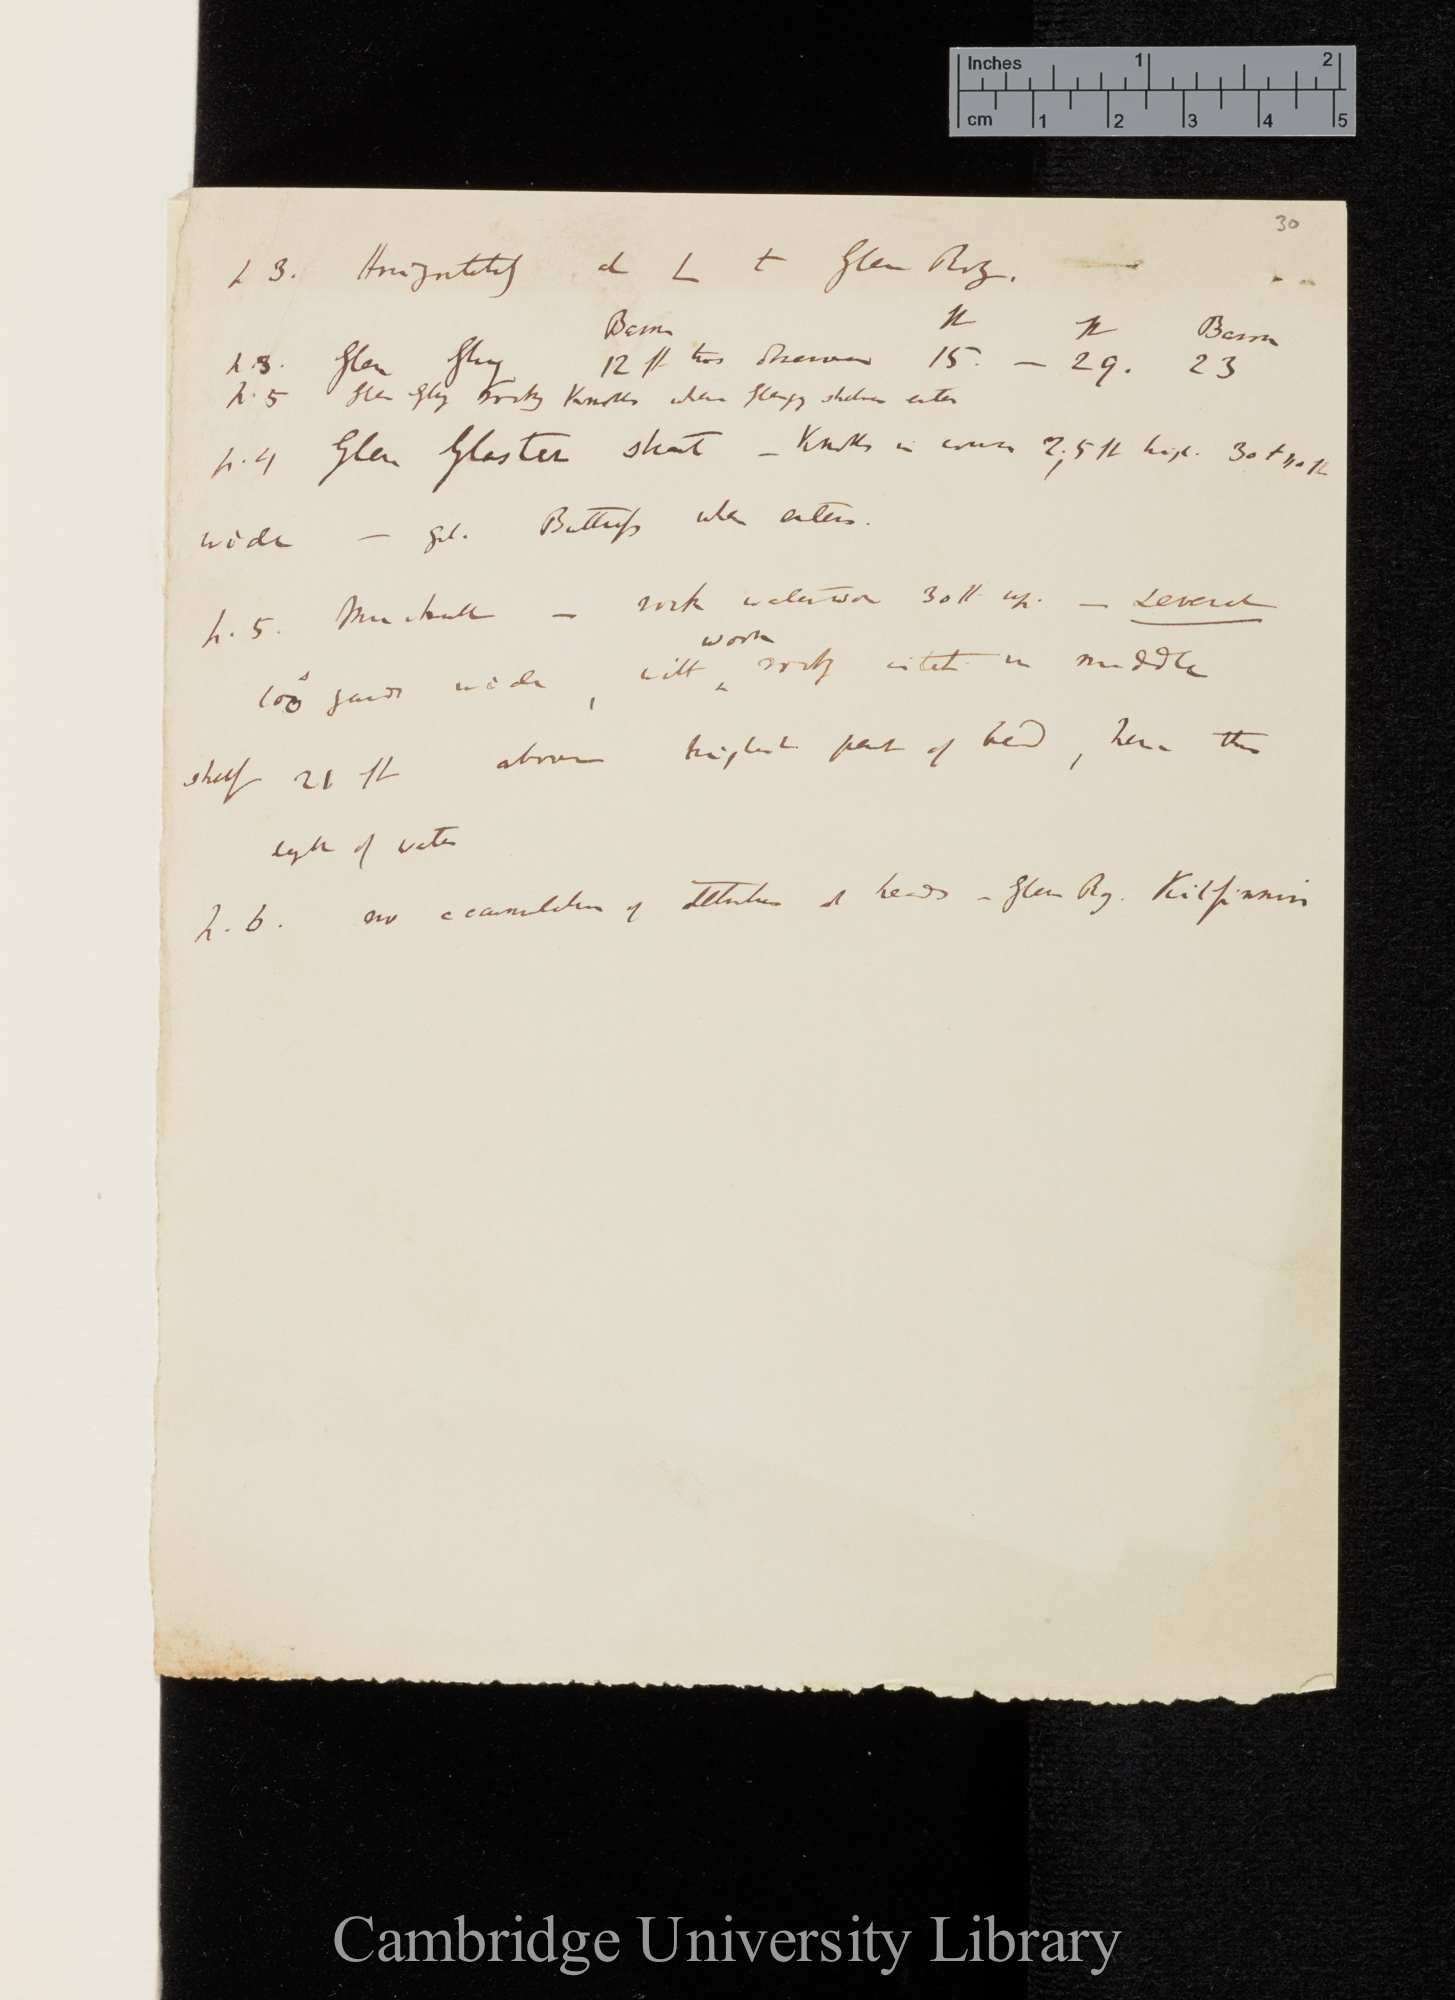 Inches 1 2
cm 1 2 3 4 5
30
p 3. Horizontality of L + Glen Roy.
Barom ft ft Barom
p 3. Glen Gluy 12 ft two observers 15. — 29. 23
p. 5 Glen Gluy rocky Knolls where shelves enter
p. 4 Glen Glaster — Knolls in 2,5 ft high. 30 + 40 ft
wide — Buttress when enters.
p. 5. Muckull — rock waterworn 30 ft up. — several
worn
100s yards wide, with ^ rocky in middle
shelf 21 ft above highest part of head, here this
depth of water
p. 6. no accumulation of detritus at heads — Glen Roy. Kilfinnin
Cambridge University Library